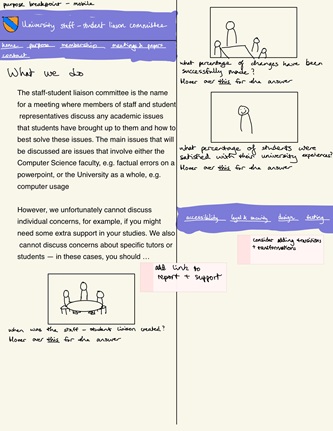 purpose breakpoint - mobile
University staff - student liaison committee
home purpose membership meetings & papers
contact
What we do
The staff-student liaison committee is the name
for a meeting where members of staff and student
representatives discuss any academic issues
that students have brought up to them and how to
best solve these issues. The main issues that will
be discussed are issues that involve either the
Computer Science faculty, e.g. factual errors on a
powerpoint, or the University as a whole, e.g.
computer usage
However, we unfortunately cannot discuss
individual concerns, for example, if you might
need some extra support in your studies. We also
cannot discuss concerns about specific tutors or
students — in these cases, you should ...
add link to
report + support
when was the staff - student liaison created?
Hover over this for the answer
what percentage of changes have been
successfully made?
Hover over this for the answer
what percentage of students were
satisfied with their university experience?
Hover over this for the answer
accessibility legal & security design testing
consider adding transitions
+ transformations